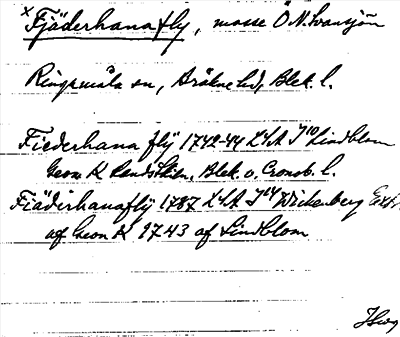 x Fjäderhanafly, mosse Ö.N. Svansjön
Ringamåla sn, Bräkne hd, Blek. l.
Fiederhana flÿ 1742-44 LSA J10 Lindblom
Geom K Rendsskiln. Blek. o. Cronob. l.
Fiäderhanaflÿ 1787 LSA J14 Wickenberg Extr.
af Geom K 1743 af Lindblom